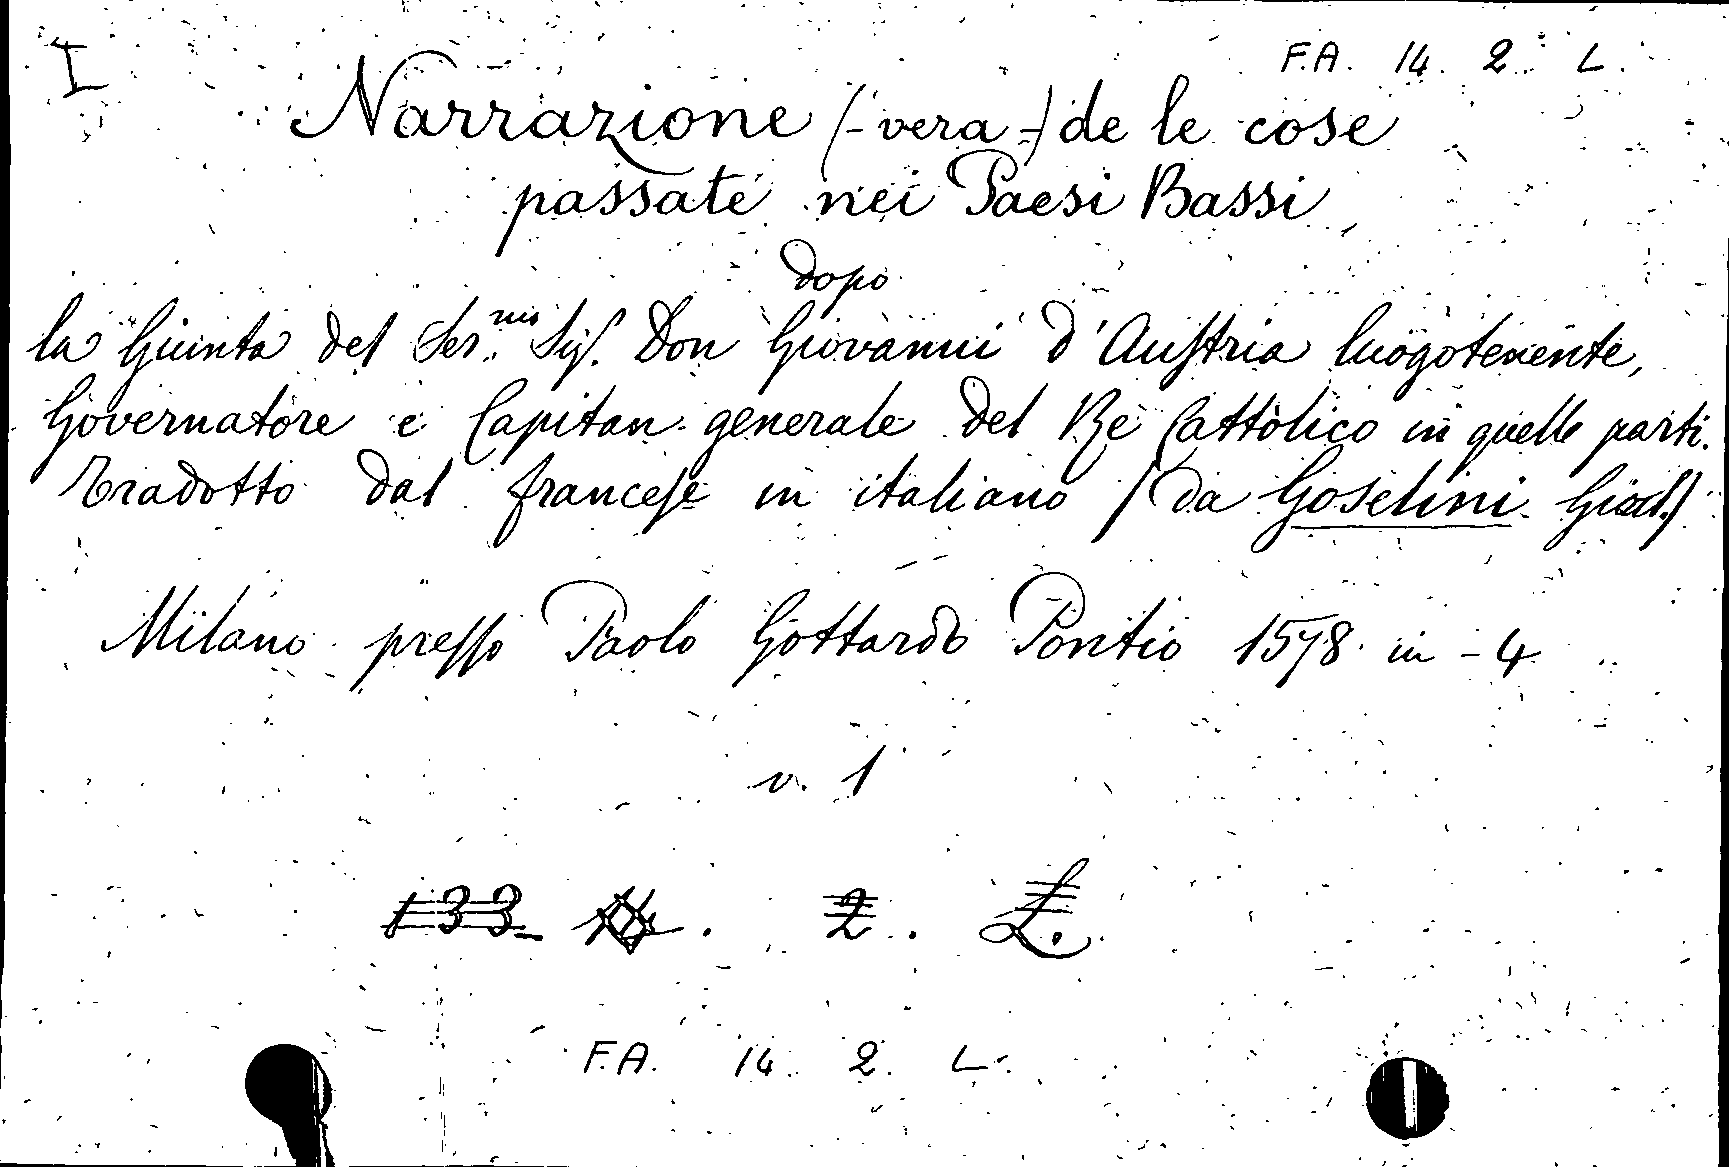 I
F.A. 14. 2. L.
Narrazione (-vera-) de le cose
passate nei Paesi Bassi
dopo
la Giunta del Ser.mo Sig. Don Giovanni d'Austria luogotenente,
Governatore e Capitan generale del Re Cattolico in quelle parti.
Tradotto dal francese in italiano (da Goselini
Milano presso Paolo Gottardo Pontio 1578 in-4
v. 1
133 2. L.
F.A. 14. 2. L.